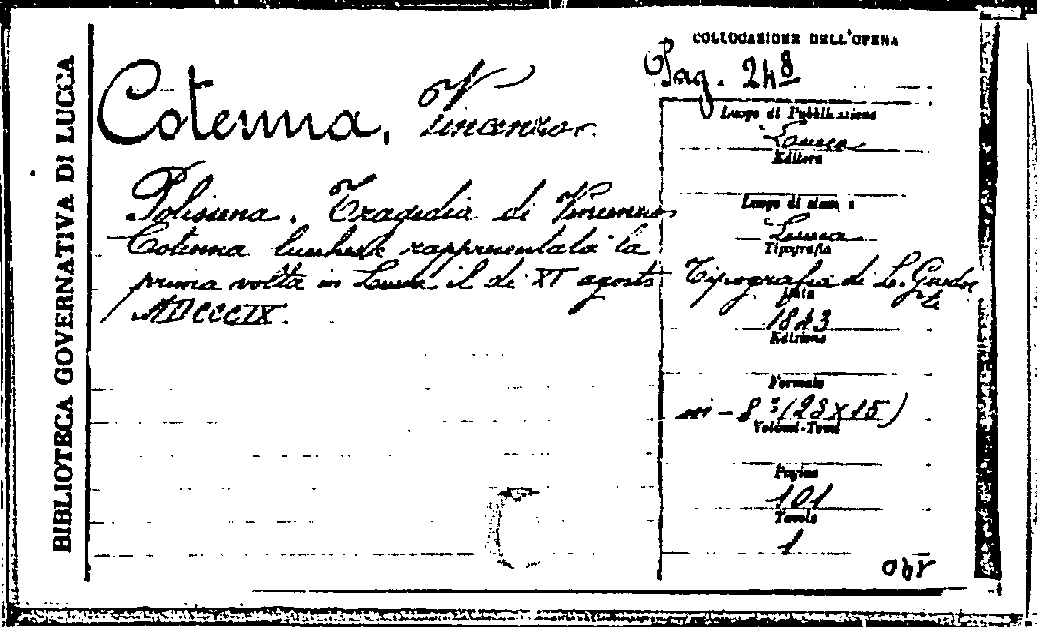 BIBLIOTECA GOVERNATIVA DI LUCCA
COLLOCAZIONE DELL'OPERA
Pag. 248
Cotenna, Vincenzo.
Polissena. Tragedia di Vincenzo
Cotenna lucchese rappresentata la
prima volta in Lucca il dì XI agosto
MDCCCIX.
Luogo di Pubblicazione
Lucca
Editore
Luogo di stampa
Lucca
Tipografia
Tipografia di L. Guidotti
Data
1843
Edizione
Formato
in-8° (23x15)
Volumi-Tomi
Pagine
101
Tavole
1